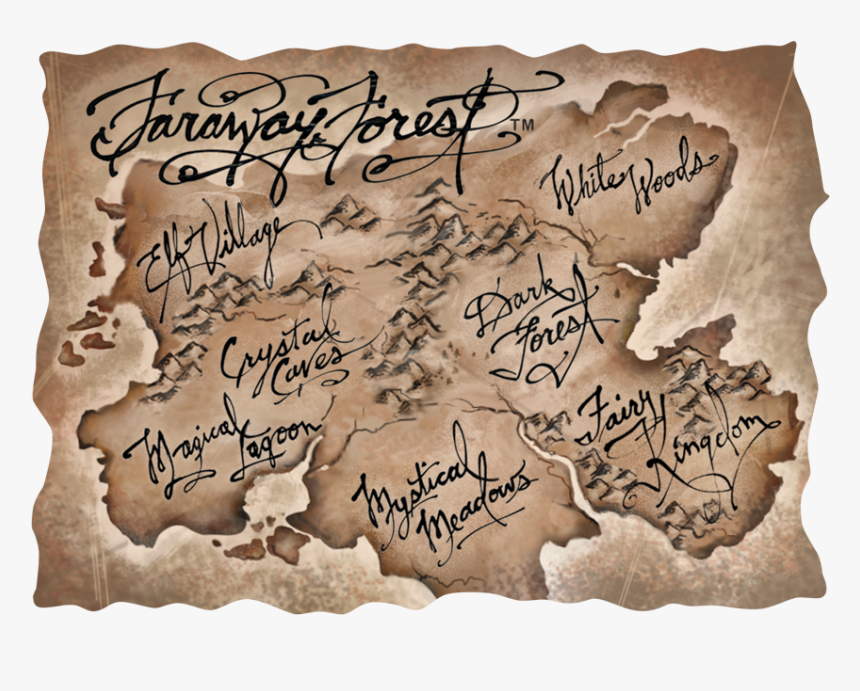 Faraway Forest™
White Woods
Elf Village
Dark
Forest
Crystal
Caves
Fairy
Kingdom
Magical
Lagoon
Mystical
Meadows